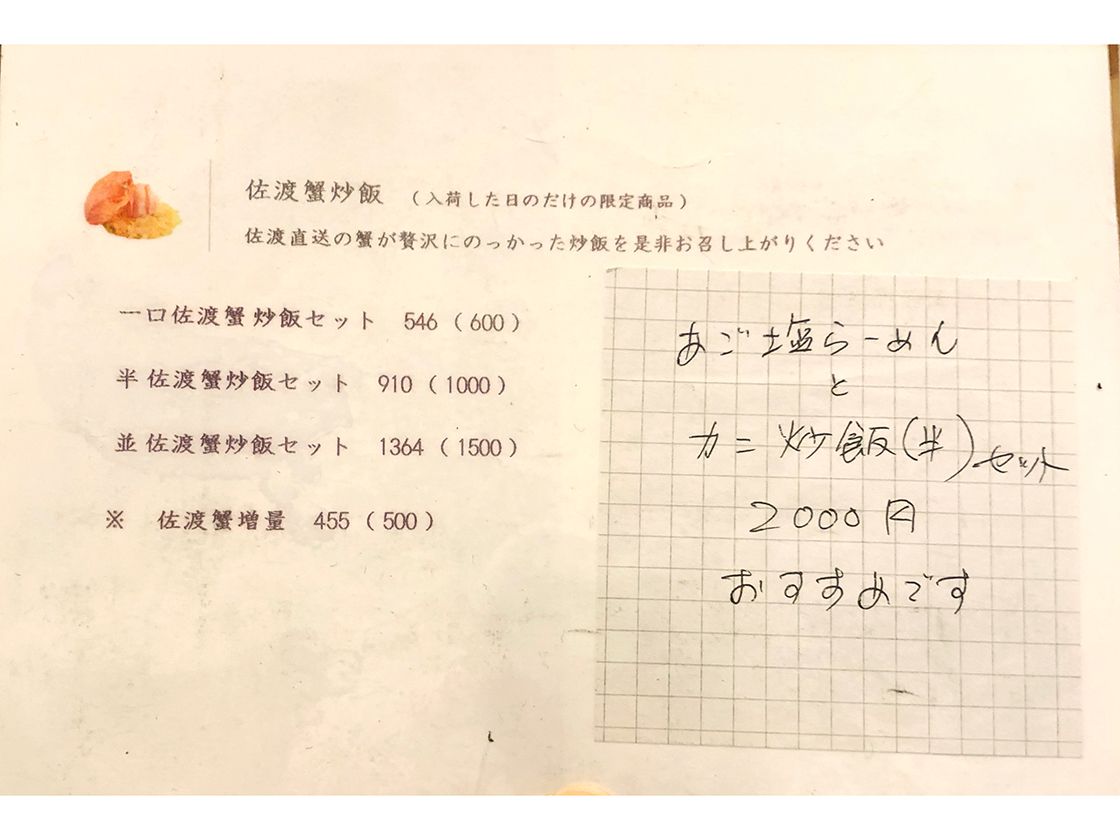 佐渡蟹炒飯 (入荷した日のだけの限定商品)
佐渡直送の蟹が贅沢にのっかった炒飯を是非お召し上がりください
一口佐渡蟹炒飯セット 546 (600)
半 佐渡蟹炒飯セット 910 (1000)
並 佐渡蟹炒飯セット 1364 (1500)
※ 佐渡蟹増量 455 (500)
あご塩らーめん
と
カニ炒飯(半)セット
2000円
おすすめです